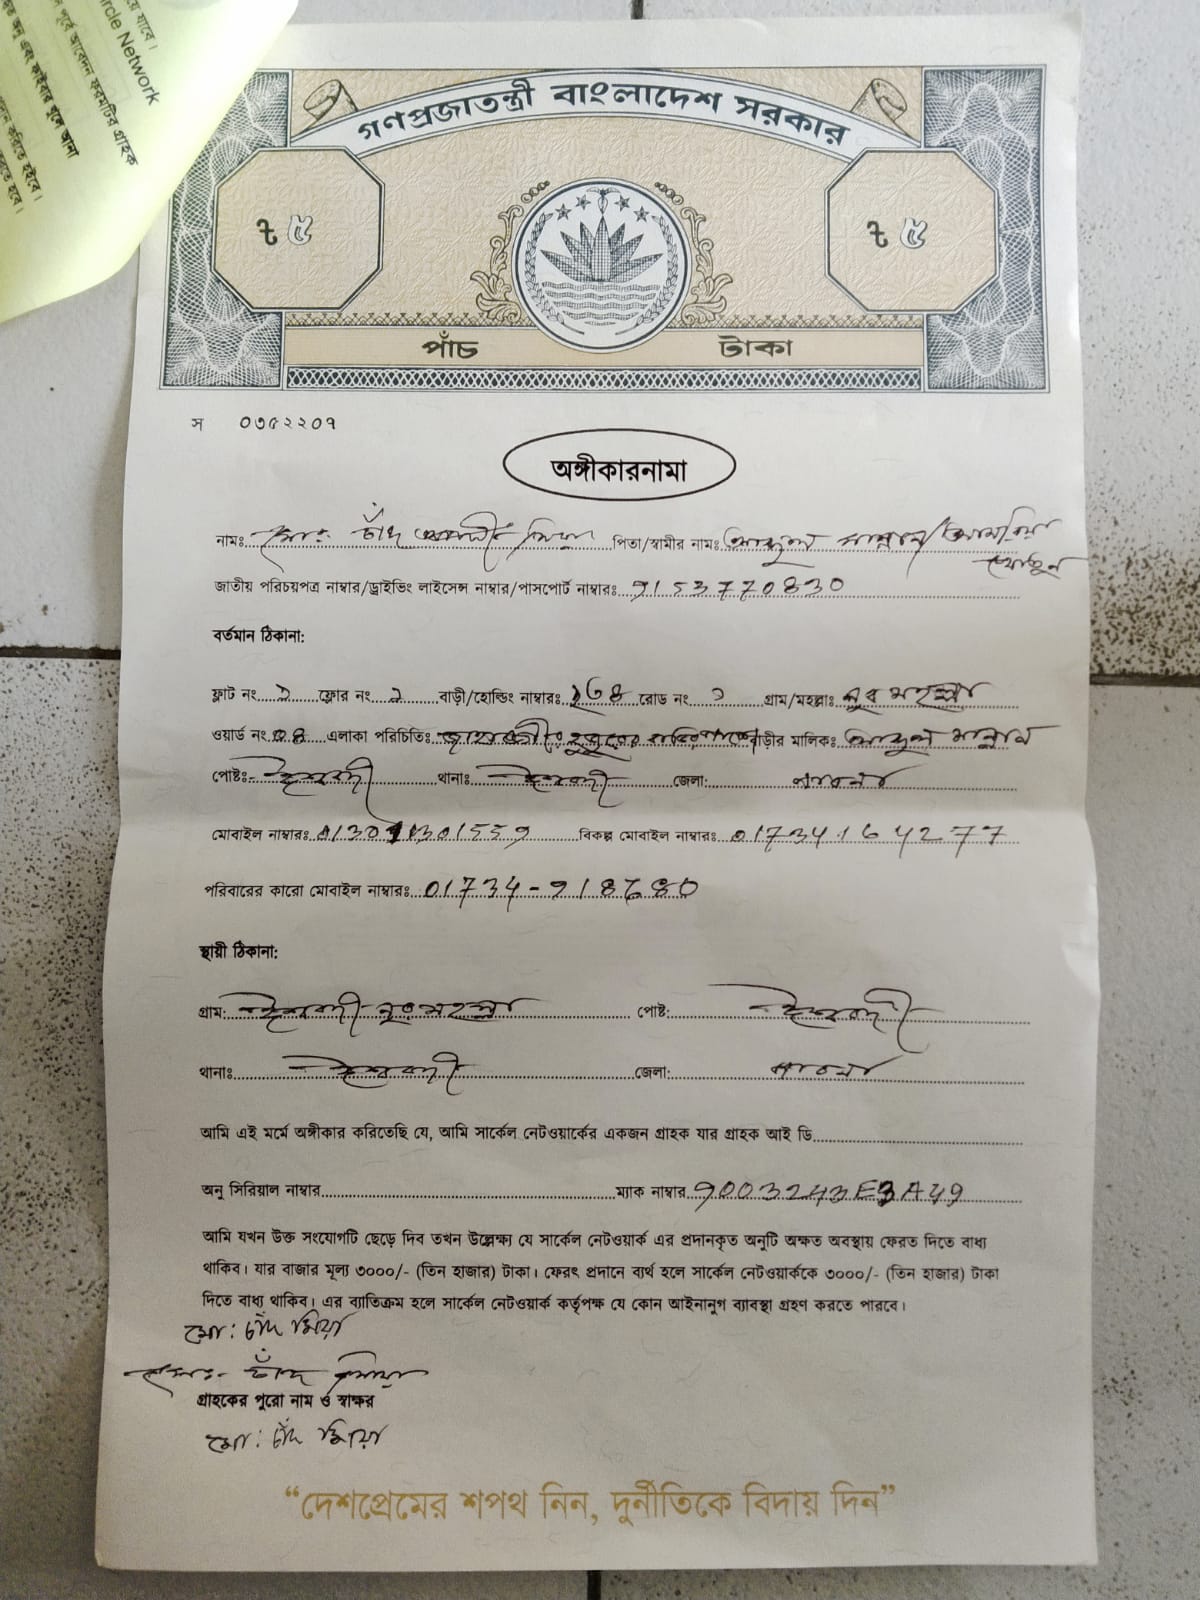 rcle Network
গণপ্রজাতন্ত্রী বাংলাদেশ সরকার
৳ ৫ ৳ ৫
পাঁচ টাকা
স ০৩৫২২০৭
অঙ্গীকারনামা
নামঃ মোঃ চাঁদ মিয়া পিতা/স্বামীর নামঃ আব্দুল মান্নান/
খাতুন
জাতীয় পরিচয়পত্র নাম্বার/ড্রাইভিং লাইসেন্স নাম্বার/পাসপোর্ট নাম্বারঃ 9153770830
বর্তমান ঠিকানা:
ফ্লাট নং ফ্লোর নং বাড়ী/হোল্ডিং নাম্বারঃ রোড নং গ্রাম/মহল্লাঃ নুর মহল্লা
ওয়ার্ড নং এলাকা পরিচিতিঃ বাড়ীর মালিকঃ আব্দুল মান্নান
পোষ্টঃ ঈশ্বরদী থানাঃ ঈশ্বরদী জেলা: পাবনা
মোবাইল নাম্বারঃ বিকল্প মোবাইল নাম্বারঃ 01734164277
পরিবারের কারো মোবাইল নাম্বারঃ 01734-918680
স্থায়ী ঠিকানা:
গ্রাম: ঈশ্বরদী নুরমহল্লা পোষ্ট: ঈশ্বরদী
থানাঃ ঈশ্বরদী জেলা: পাবনা
আমি এই মর্মে অঙ্গীকার করিতেছি যে, আমি সার্কেল নেটওয়ার্কের একজন গ্রাহক যার গ্রাহক আই ডি
অনু সিরিয়াল নাম্বার ম্যাক নাম্বার 9003243E3A49
আমি যখন উক্ত সংযোগটি ছেড়ে দিব তখন উল্লেক্ষ্য যে সার্কেল নেটওয়ার্ক এর প্রদানকৃত অনুটি অক্ষত অবস্থায় ফেরত দিতে বাধ্য
থাকিব। যার বাজার মূল্য ৩০০০/- (তিন হাজার) টাকা। ফেরৎ প্রদানে ব্যর্থ হলে সার্কেল নেটওয়ার্ককে ৩০০০/- (তিন হাজার) টাকা
দিতে বাধ্য থাকিব। এর ব্যাতিক্রম হলে সার্কেল নেটওয়ার্ক কর্তৃপক্ষ যে কোন আইনানুগ ব্যাবস্থা গ্রহণ করতে পারবে।
মো: চাঁদ মিয়া
মোঃ চাঁদ মিয়া
গ্রাহকের পুরো নাম ও স্বাক্ষর
মো: চাঁদ মিয়া
“দেশপ্রেমের শপথ নিন, দুর্নীতিকে বিদায় দিন”